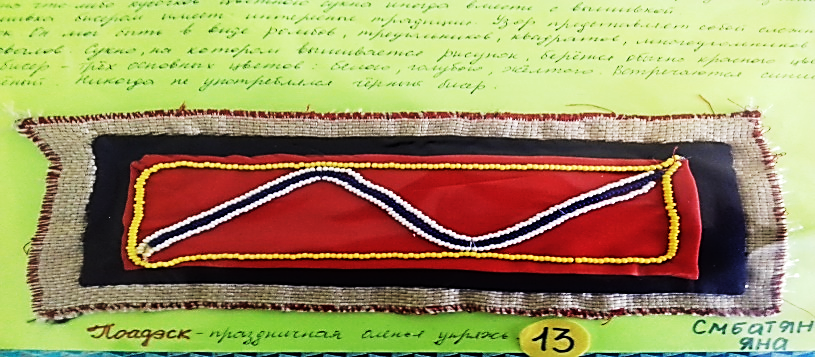 что либо кусочков цветного сукна иногда вместе с вышивкой
бисером имеет интересные традиции. Узор представляет собой
Он мог быть в виде ромбов, треугольников, квадратов, многоугольников
овалов. Сукно, на котором вышивается рисунок, берётся обычно красного
Бисер - трёх основных цветов: белого, голубого, жёлтого. Встречаются синий
Никогда не употреблялся чёрный бисер.
Поадэск - праздничная оленья упряжь
13
Смбатян
Яна